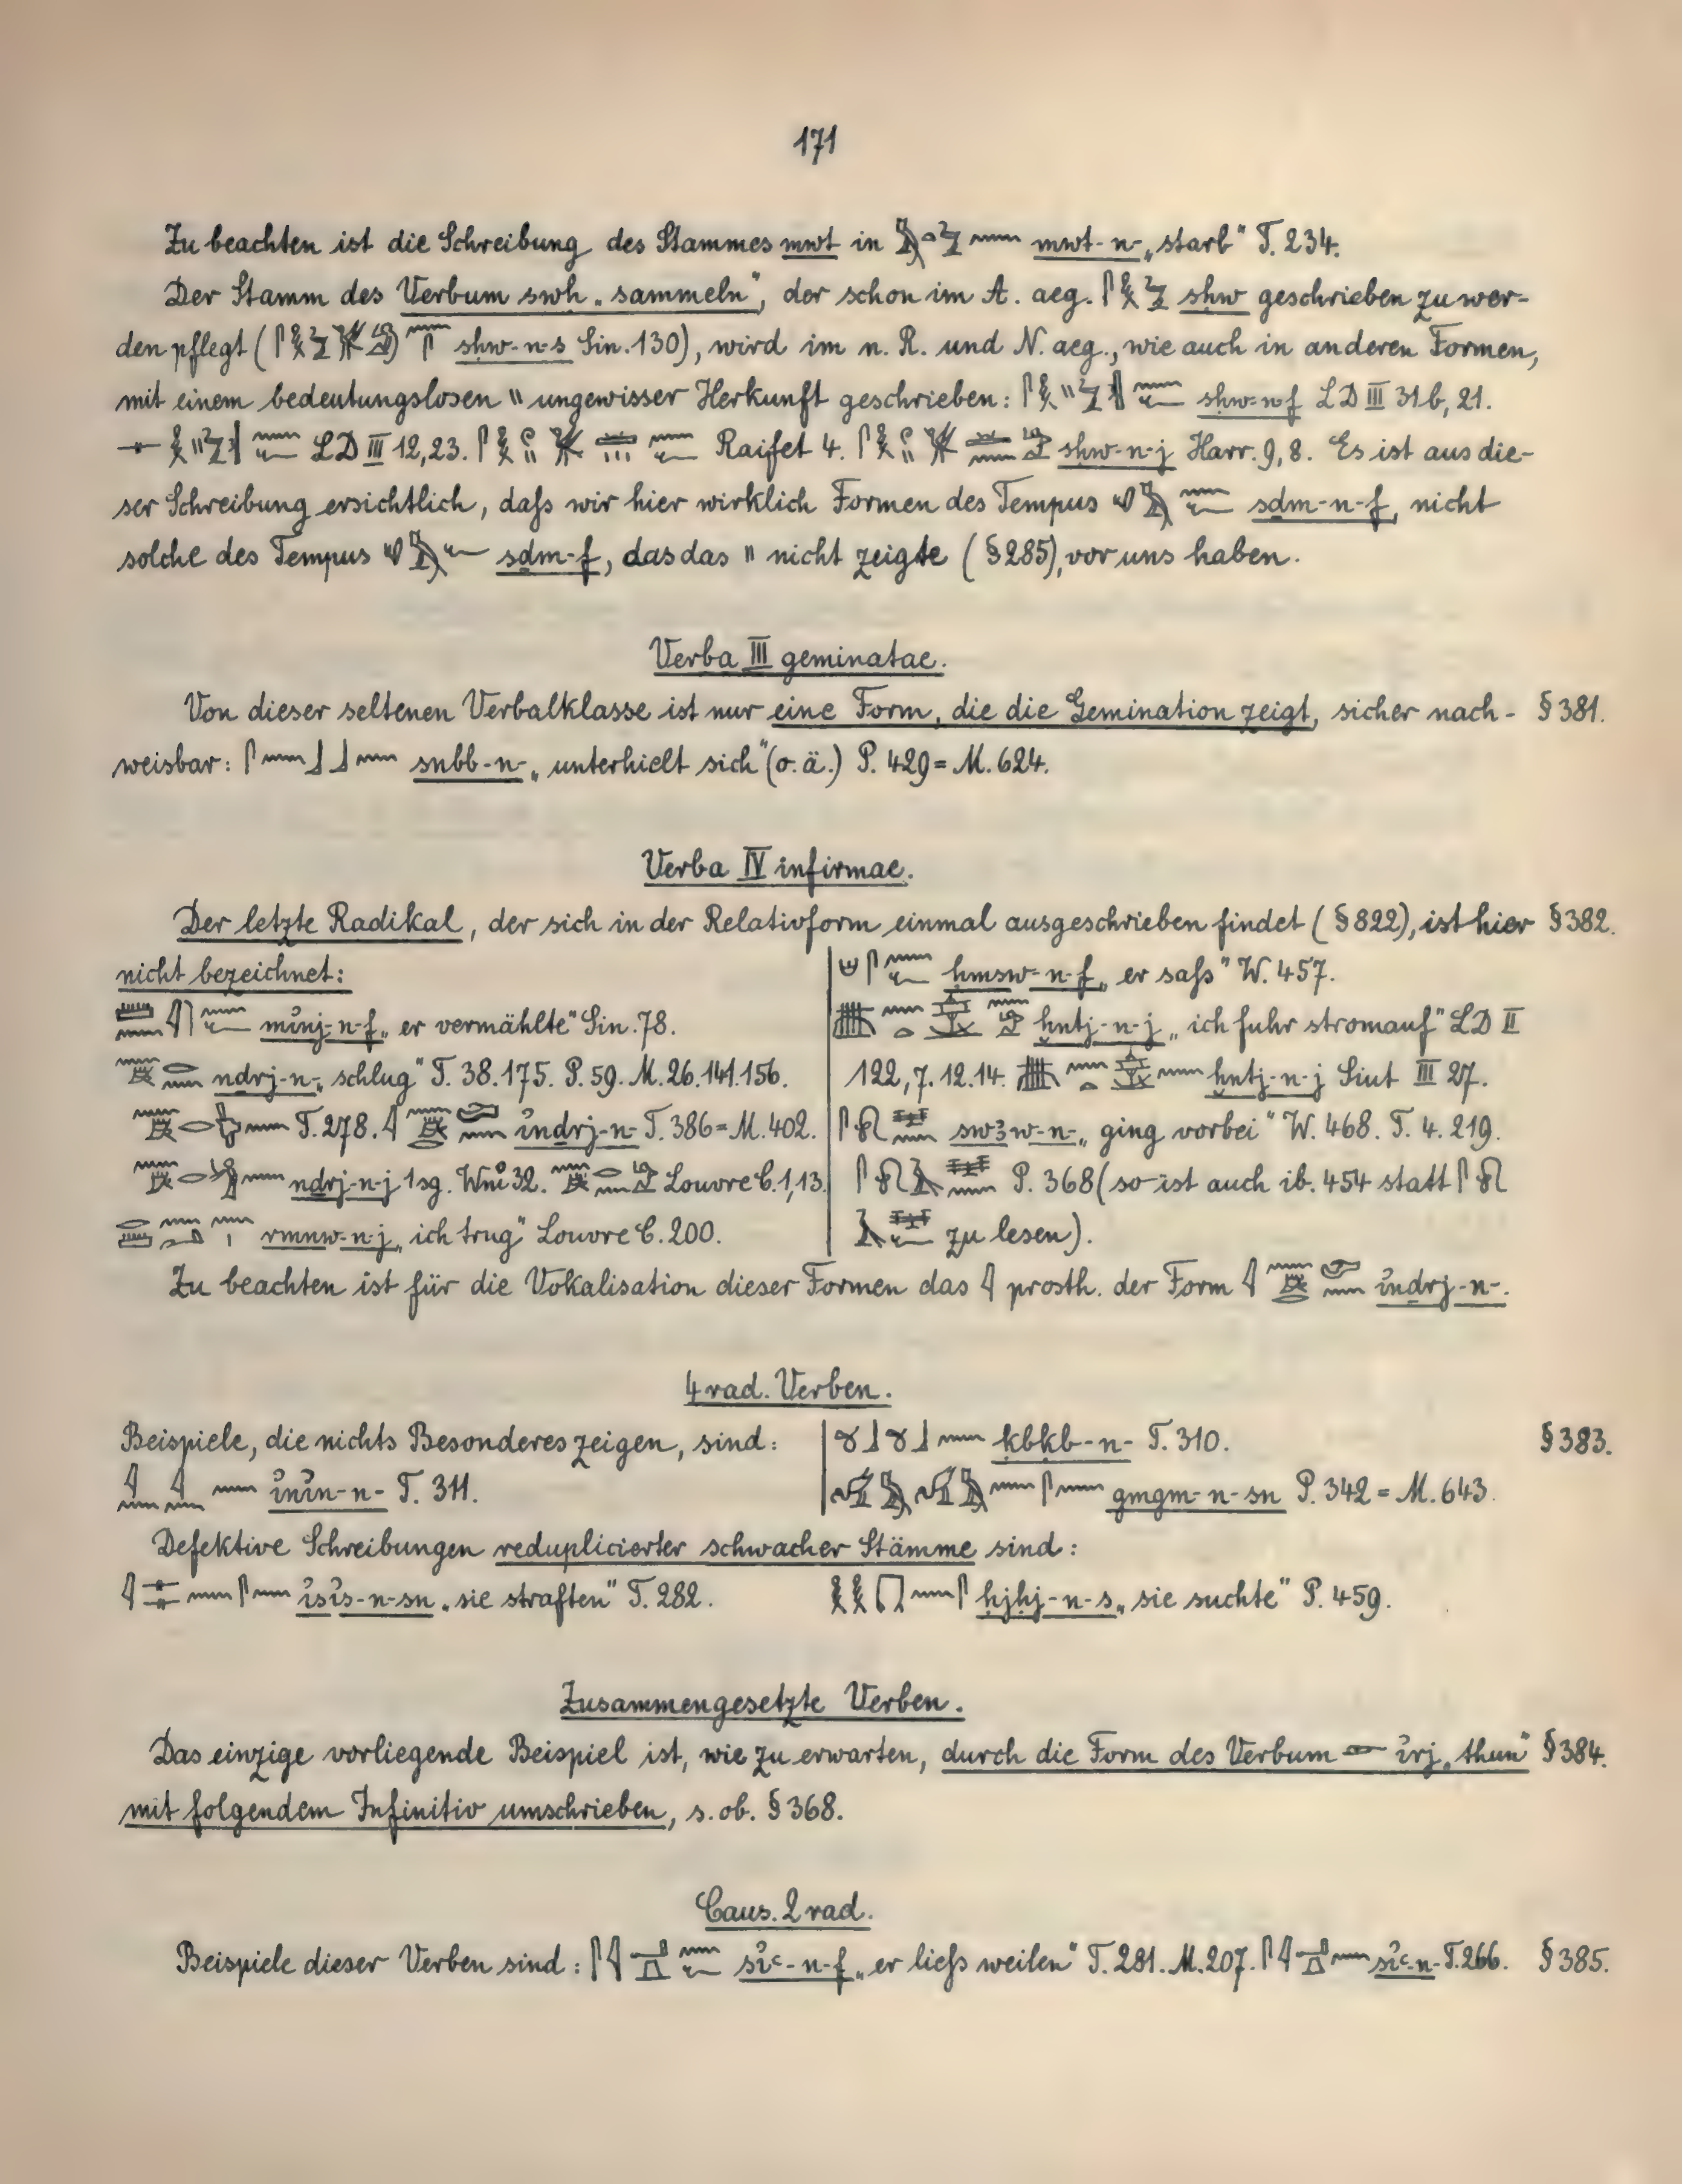 171
Zu beachten ist die Schreibung des Stammes mwt in mwt-n- „starb" T. 234.
Der Stamm des Verbum swḥ „sammeln", der schon im A. aeg. sḥw geschrieben zu wer-
den pflegt ( sḥw-n-s Sin. 130), wird im n. R. und N. aeg., wie auch in anderen Formen,
mit einem bedeutungslosen \\ ungewisser Herkunft geschrieben: sḥw-n-f LD III 31b, 21.
LD III 12,23. Raifet 4. sḥw-n-j Harr. 9, 8. Es ist aus die-
ser Schreibung ersichtlich, daſs wir hier wirklich Formen des Tempus sḏm-n-f, nicht
solche des Tempus sḏm-f, das das \\ nicht zeigte (§ 285), vor uns haben.
Verba III geminatae.
Von dieser seltenen Verbalklasse ist nur eine Form, die die Gemination zeigt, sicher nach- § 381.
weisbar: snbb-n- „unterhielt sich" (o. ä.) P. 429 = M. 624.
Verba IV infirmae.
Der letzte Radikal, der sich in der Relativform einmal ausgeschrieben findet (§ 822), ist hier § 382.
nicht bezeichnet:
mỉnj-n-f „er vermählte" Sin. 78.
nḏrj-n- „schlug" T. 38. 175. P. 59. M. 26. 141. 156.
T. 278. ỉnḏrj-n- T. 386 = M. 402.
nḏrj-n-j 1 sg. Wnỉ 32. Louvre C. 1, 13.
rmnw-n-j „ich trug" Louvre C. 200.
ḥmsw-n-f „er saſs" W. 457.
ḫntj-n-j „ich fuhr stromauf" LD II
122, 7. 12. 14. ḫntj-n-j Siut III 27.
swꜣw-n- „ging vorbei" W. 468. T. 4. 219.
P. 368 (so ist auch ib. 454 statt
zu lesen).
Zu beachten ist für die Vokalisation dieser Formen das 𓇋 prosth. der Form ỉnḏrj-n-.
4 rad. Verben.
Beispiele, die nichts Besonderes zeigen, sind: § 383.
ỉnỉn-n- T. 311.
kbkb-n- T. 310.
gmgm-n-sn P. 342 = M. 643.
Defektive Schreibungen reduplicierter schwacher Stämme sind:
ỉsỉs-n-sn „sie straften" T. 282. ḥjḥj-n-s „sie suchte" P. 459.
Zusammengesetzte Verben.
Das einzige vorliegende Beispiel ist, wie zu erwarten, durch die Form des Verbum 𓁹 ỉrj „thun" § 384.
mit folgendem Infinitiv umschrieben, s. ob. § 368.
Caus. 2 rad.
Beispiele dieser Verben sind: sỉꜥ-n-f „er lieſs weilen" T. 281. M. 207. sỉꜥ-n- T. 266. § 385.